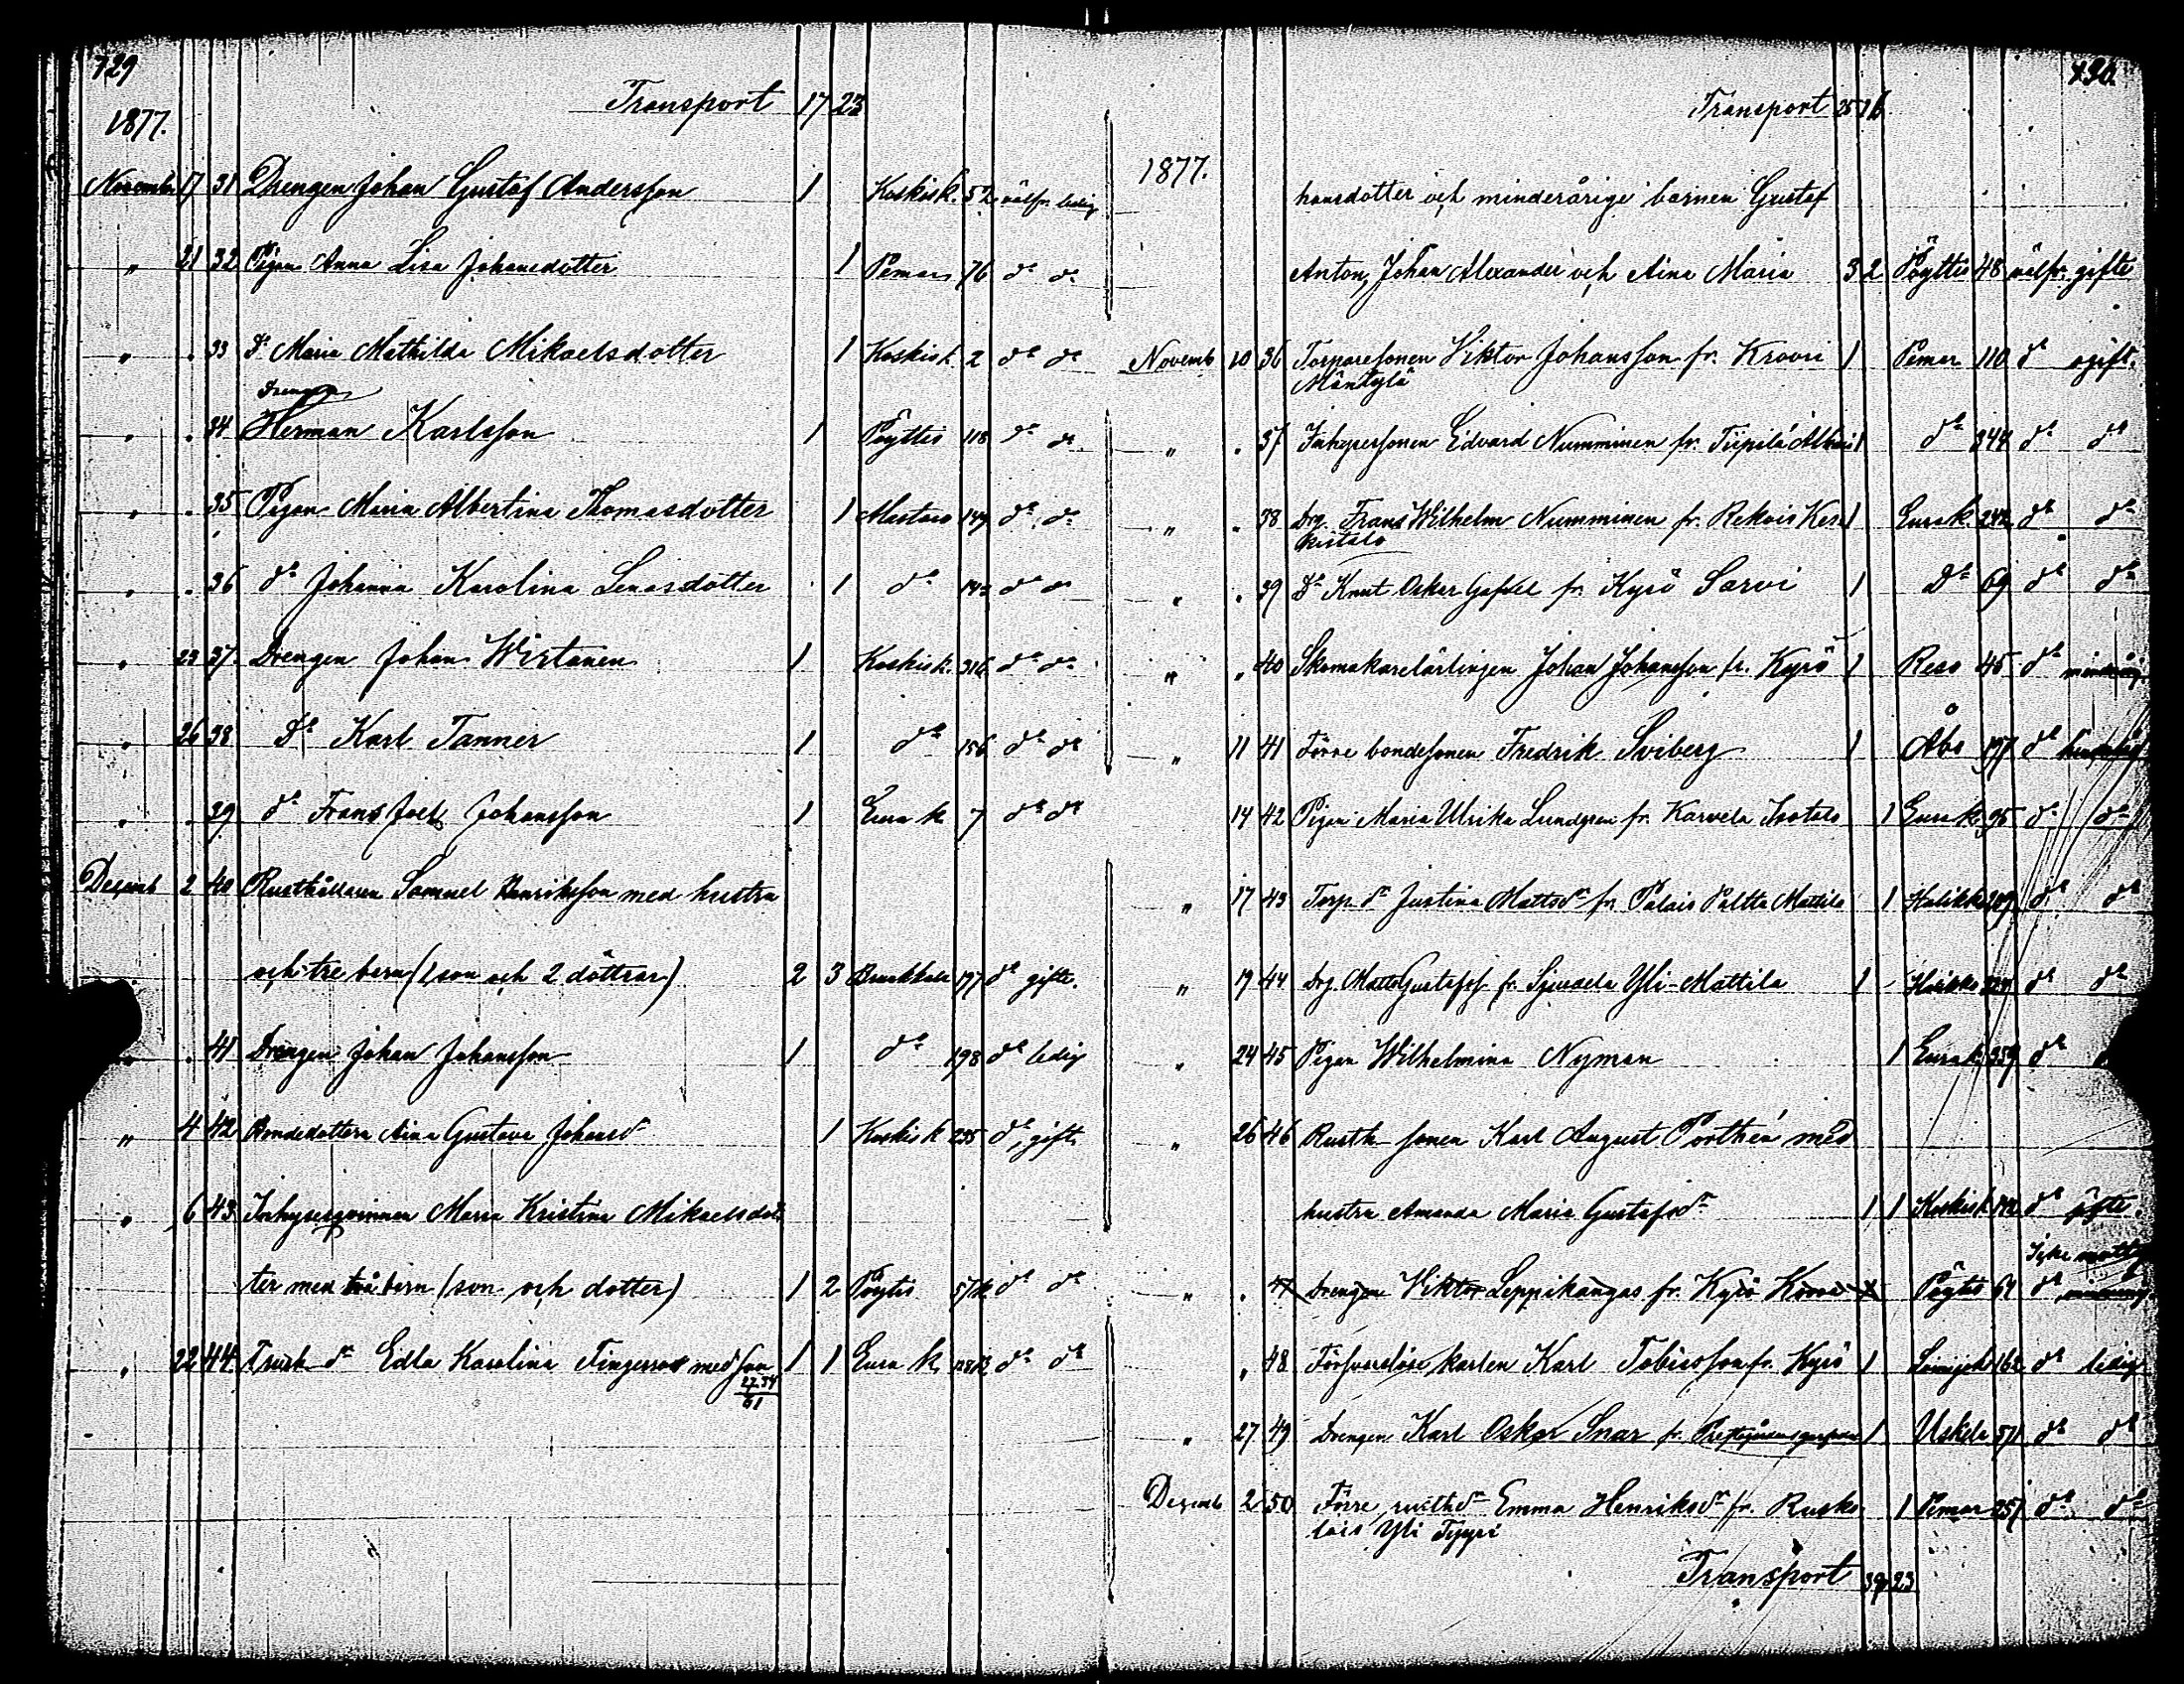 729
Transport 17 23
1877.
November 17 31 Drengen Johan Gustaf Andersson 1 Koskis k. 52 välfr. ledig
" 21 32 Pigan Anna Lisa Johansdotter 1 Pemar 76 do do
" . 33 Do Maria Mathilda Mikaelsdotter 1 Koskis k. 2 do do
Drengen
" . 34 Herman Karlsson 1 Pöyttis 118 do do
" . 35 Pigan Maria Albertina Thomasdotter 1 149 do do
" . 36 do Johanna Karolina 1 do 142 do do
" 23 37. Drengen Johan Wirtanen 1 Koskis k. 316 do do
" 26 38 Do Karl Tanner 1 do 156 do do
" . 39 do Frans Joel Johansson 1 Eura k. 7 do do
Decemb 2 40 Rusthållaren Samuel Henriksson med hustru
och tre barn (1 son och 2 döttrar) 2 3 197 do gifte.
" . 41 Drengen Johan Johansson 1 do 198 do ledig
" 4 42 Bondedottern Aina Gustava Johansdr 1 Koskis k 235 do gift
" 6 43 Inhysesqvinnan Maria Kristina Mikaelsdot
ter med två barn (son och dotter) 1 2 Pöytis do do
" 22 44. dr Edla Karolina med son 1 1 Eura k. do do
27.34
61
730.
Transport 25 16
1877.
hansdotter och minderårige barnen Gustaf
Anton, Johan Alexander och Aina Maria 3 2 Pöyttis 48 välfr. gifte
Novemb 10 36 Torparesonen Viktor Johansson fr. Krovri 1 Pemar 110 do ogift.
Mäntylä
" . 37 Inhysessonen Edvard Numminen fr. Tiipilä 1 do 344 do do
" . 38 Drg. Frans Wilhelm Numminen fr. Rekois Kes 1 Eura k. 242 do do
kistalo
" . 39 Do Knut Oskar fr. Kyrö Sarvi 1 Do 69 do do
" . 40 Skomakarelärlingen Johan Johansson fr. Kyrö 1 Reso 45 do minderårig
" 11 41 Förre bondesonen Fredrik Sviberg 1 Åbo 197 do
14 42 Pigan Maria Ulrika Lundgren fr. Karvela Isotalo 1 Eura k. 95 do do
" 17 43 Torp. dr Justina Mattsdr fr. Palais Paltta Mattila 1 Halikko 209 do do
" 19 44 Drg. Matts Gustafss fr. Yli-Mattila 1 do do
" 24 45 Pigan Wilhelmina Nyman 1 Eura k. 359 do
" 26 46 Rusth sonen Karl August Porthén med
hustru Amanda Maria Gustafsdr 1 1 Koskis k. 142 do gifte.
" . 47 Drengen Viktor Leppikangas fr. Kyrö 1 Pöytis 61 do
" 48 Försvarslöse karlen Karl Tobiasson fr. Kyrö 1 162 do ledig
" 27 49 Drengen Karl Oskar Snar fr. 1 Uskela 571 do do
Decemb 2 50 Förre rusthdr Emma Henriksdr fr. Rusko 1 Pemar 257 do do
lais Yli Tyyri
Transport 39 23